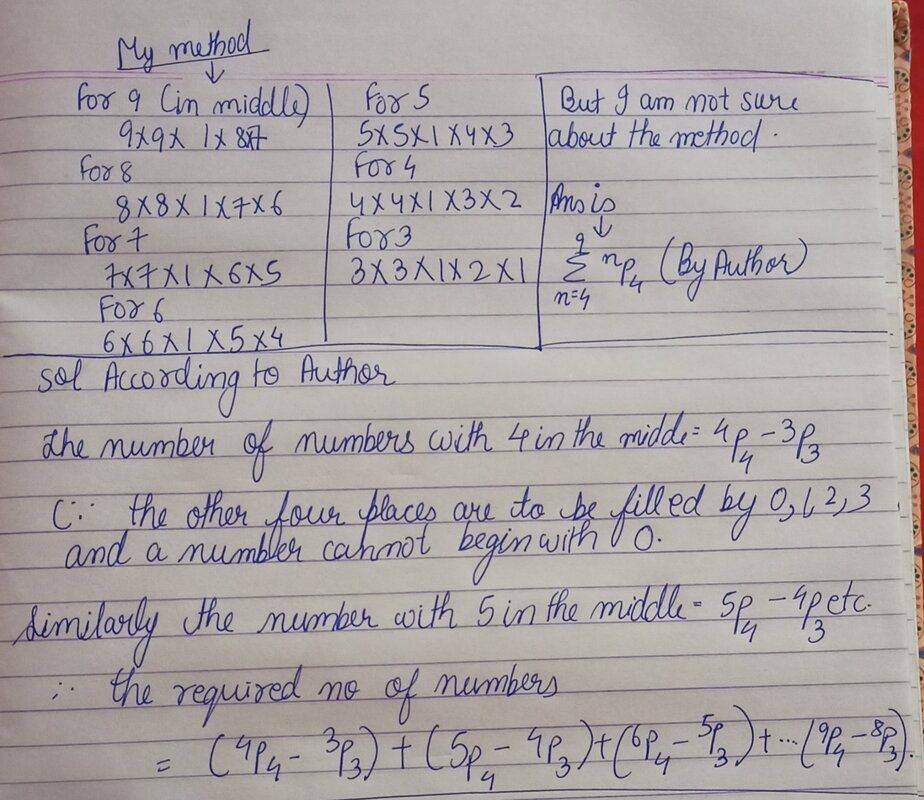 My method
↓
For 9 (in middle)
9×9× 1×8×7
For 8
8×8×1×7×6
For 7
7×7×1×6×5
For 6
6×6×1×5×4
For 5
5×5×1×4×3
For 4
4×4×1×3×2
For 3
3×3×1×2×1
But I am not sure
about the method.
Ans is
↓
9
Σ nP4 (By Author)
n=4
sol According to Author
the number of numbers with 4 in the midde = 4P4 - 3P3
(∵ the other four places are to be filled by 0,1,2,3
and a number cannot begin with 0.
Similarly the number with 5 in the middle = 5P4 - 4P3 etc.
∴ the required no of numbers
= (4P4 - 3P3) + (5P4 - 4P3) + (6P4 - 5P3) + ... (9P4 - 8P3).